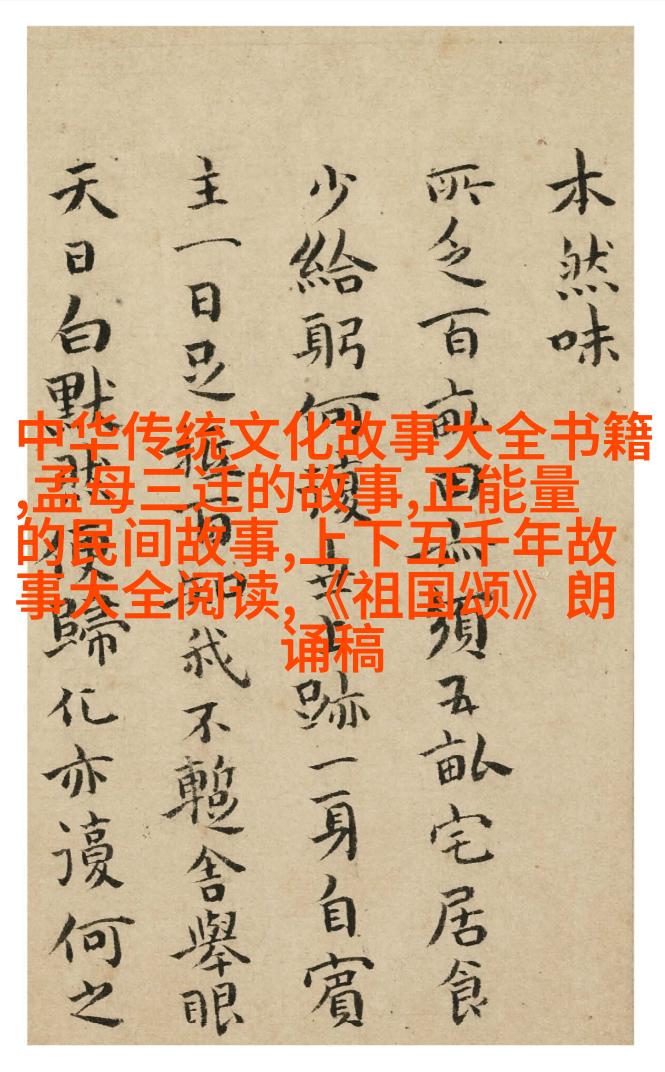 中华传统文化故事大全书籍
,孟母三迁的故事,正能量
的民间故事,上下五千年故
事大全阅读,《祖国颂》朗
诵稿
本然味
所乏百畝田頭五畝宅居食
少給躬何復跡一身自賓
主一日足我不暫舍舉眼
天日白默然復歸化亦復何之